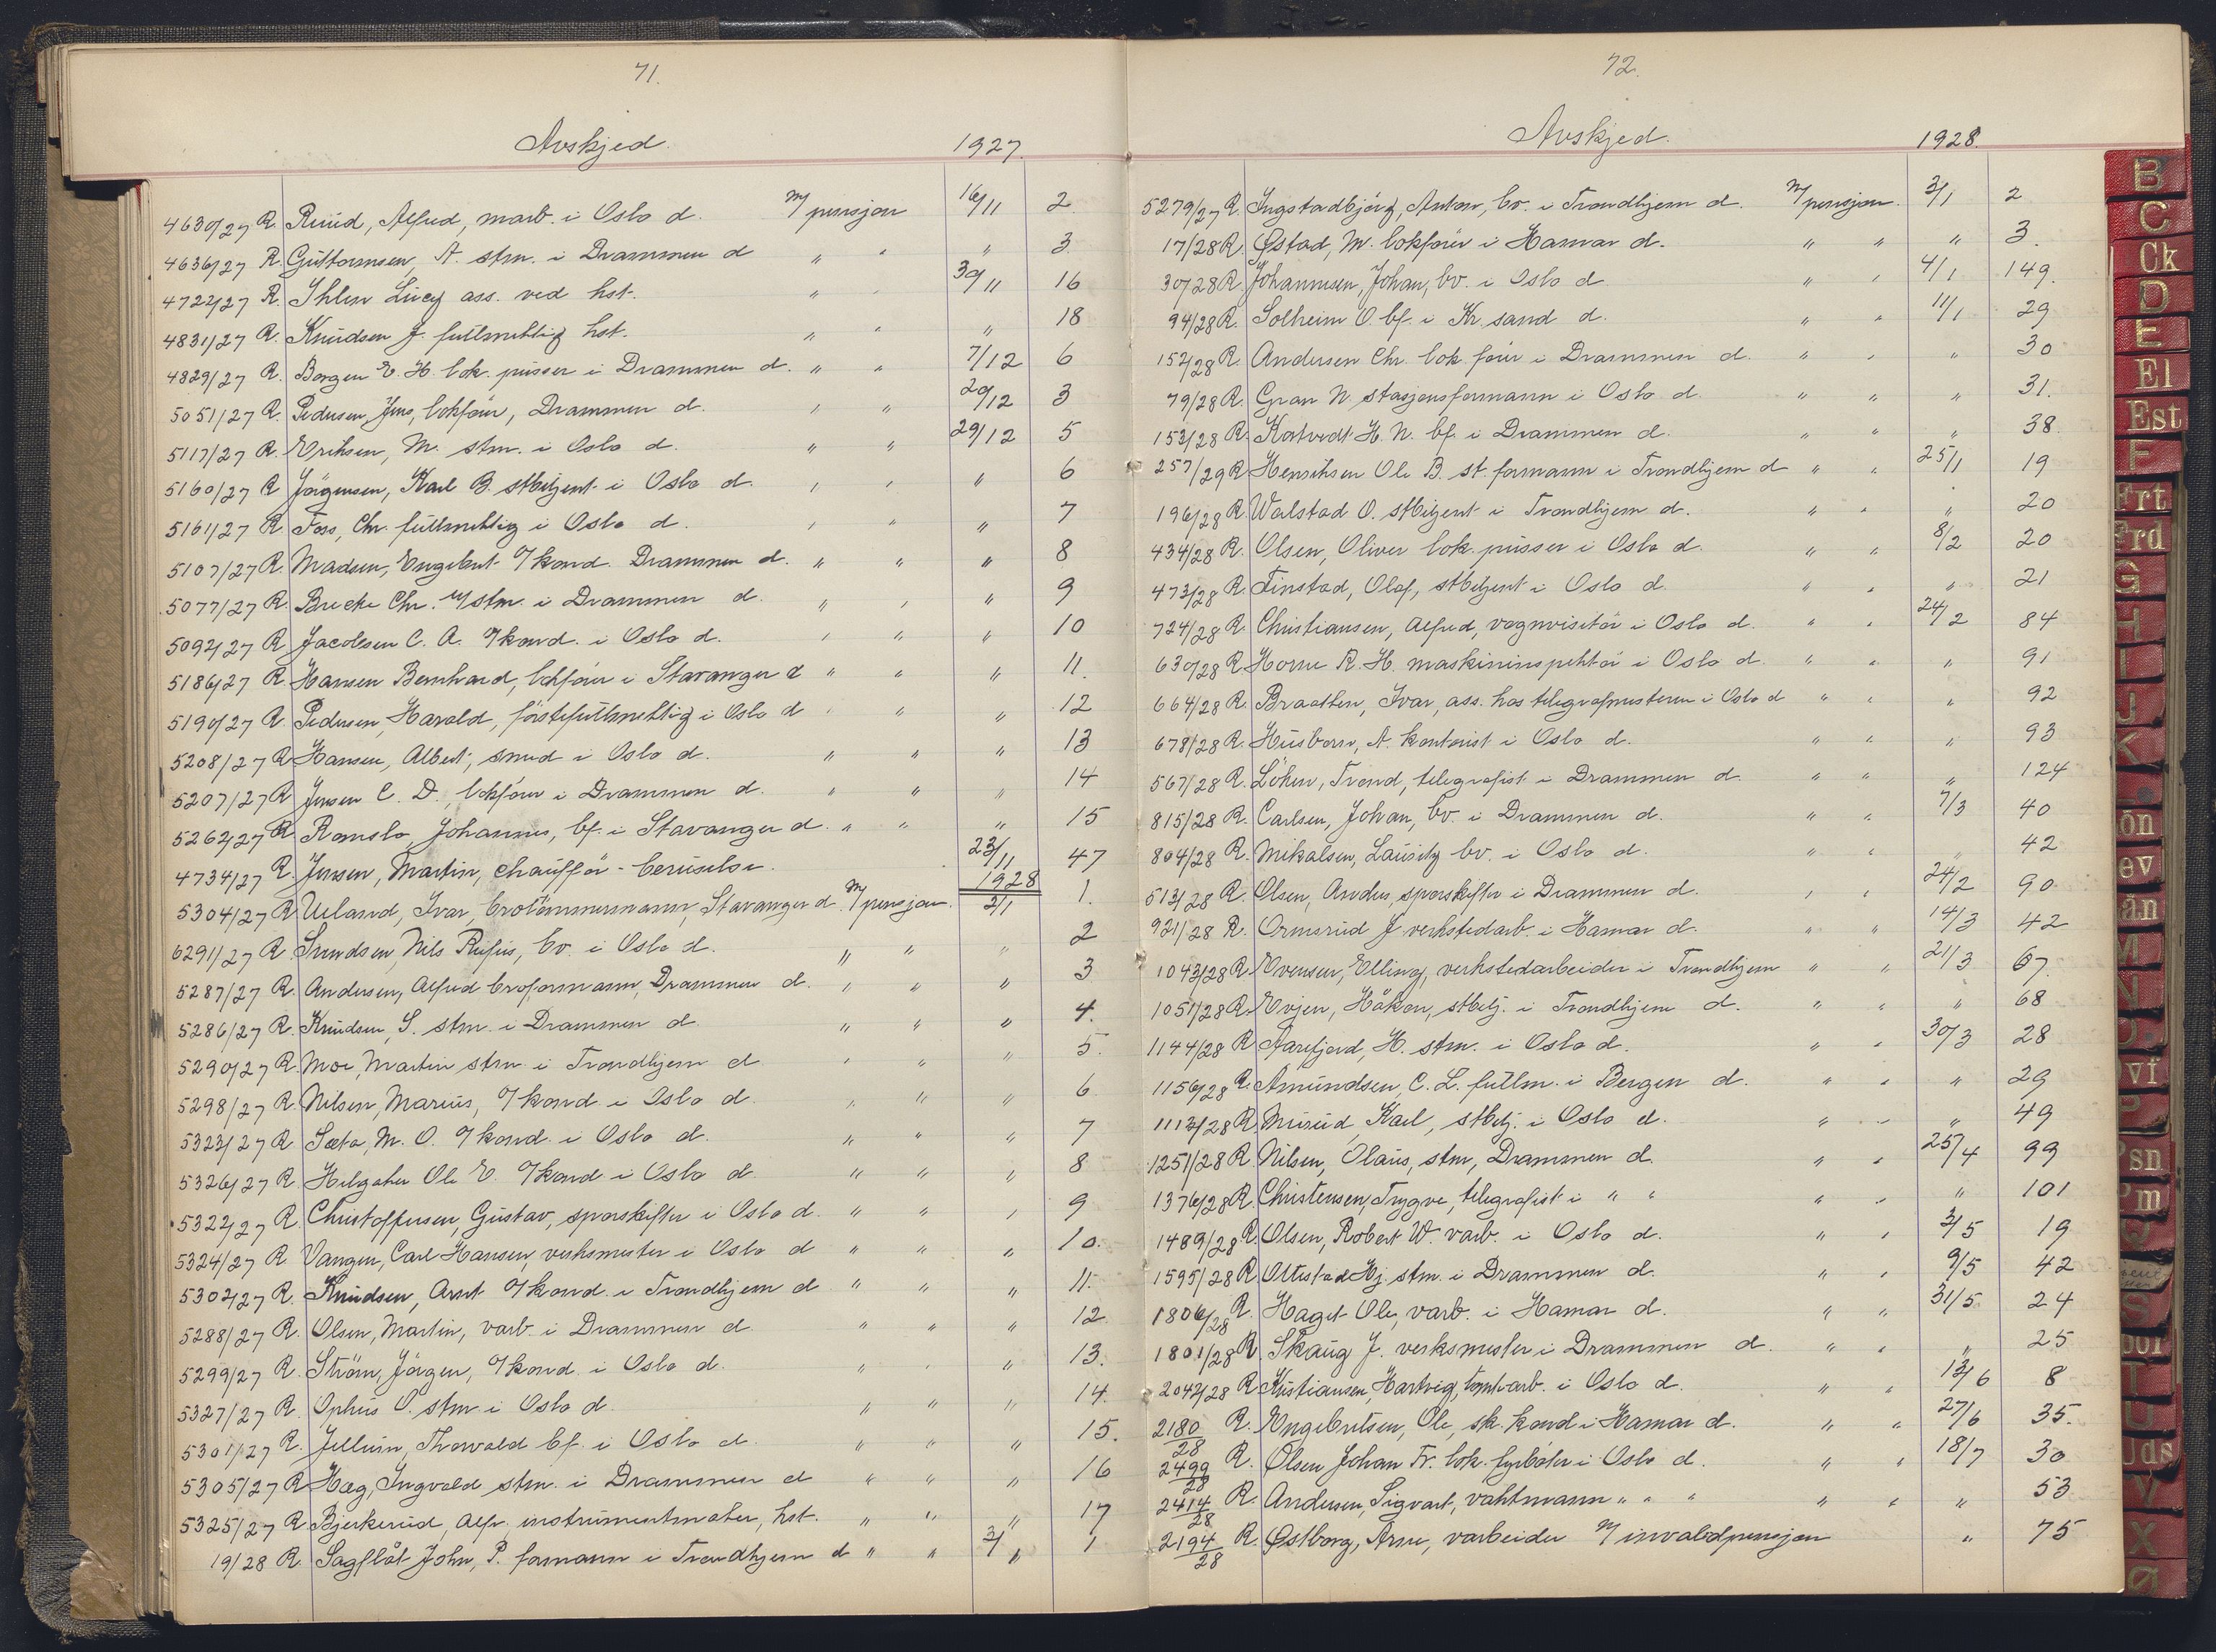 71.
Avskjed. 1927.
4630/27 R. Ruud, Alfred, marb. i Oslo d. m/ pensjon 16/11 2
4636/27 R. Guttormsen, A. stm. i Drammen d " " " 3
4722/27 R. Ihlen Lucy ass. ved hst. " " 30/11 16
4831/27 R. Knudsen J. fullmektig hst. " " " 18
4829/27 R. Borgen E. H. lok. pusser i Drammen d. " " 7/12 6
5051/27 R. Pedersen, Jens, lokfører, Drammen d. " " 20/12 3
5117/27 R. Eriksen, M. stm. i Oslo d. " " 29/12 5
5160/27 R. Jörgensen, Karl B. stbetjent i Oslo d. " " " 6
5161/27 R. Foss, Chr. fullmektig i Oslo d. " " " 7
5107/27 R. Madsen, Engebret o/kond. Drammen d. " " " 8
5077/27 R. Brecke Chr. m/stm. i Drammen d. " " " 9
5092/27 R. Jacobsen C. A. o/kond. i Oslo d. " " " 10
5186/27 R. Hansen Bernhard, lokförer i Stavanger d " " " 11.
5190/27 R. Pedersen, Harald, förstefullmektig i Oslo d " " " 12
5208/27 R. Hansen, Albert, smed i Oslo d. " " " 13
5207/27 R. Jensen C. D. lokförer i Drammen d. " " " 14
5262/27 R. Ramslo Johannes, bf. i Stavanger d. " " " 15
4734/27 R. Jensen, Martin, chaufför - beruselse. 23/11 47
1928
5304/27 R. Ueland, Ivar, brotömmermann, Stavanger d. m/ pensjon. 2/1 1.
6291/27 R. Svendsen, Nils Rufus, bv. i Oslo d. " " " 2
5287/27 R. Andersen, Alfred broformann, Drammen d. " " " 3
5286/27 R. Knudsen, S. stm. i Drammen d " " " 4.
5290/27 R. Moe, Martin stm. i Trondhjem d " " " 5.
5298/27 R. Nilsen, Marius, o/kond i Oslo d. " " " 6
5323/27 R. Sæta, M. O. o/kond. i Oslo d. " " " 7
5326/27 R. Helgaker Ole E. o/kond i Oslo d " " " 8
5322/27 R. Christoffersen, Gustav, sporskifter i Oslo d. " " " 9
5324/27 R. Vangen, Carl Hansen, verksmester i Oslo d " " " 10.
5302/27 R. Knudsen, Arnt o/kond. i Trondhjem d " " " 11.
5288/27 R. Olsen, Martin, varb. i Drammen d " " " 12.
5299/27 R. Ström, Jörgen, o/kond. i Oslo d. " " " 13.
5327/27 R. Ophus O. stm. i Oslo d. " " " 14.
5301/27 R. Jellum, Thorvald bf. i Oslo d. " " " 15.
5305/27 R. Hæg, Ingvald stm. i Drammen d " " " 16
5325/27 R. Bjerkerud, Alfr. instrumentmaker, hst. " " " 17
19/28 R. Sagflåt John, P. formann i Trondhjem d " " 3/" 1
72.
Avskjed. 1928.
5279/27 R. Ingstadbjörg, Anton, bv. i Trondhjem d. m/ pensjon. 3/1 2
17/28 R. Østad, M. lokförer i Hamar d. " " " 3.
30/28 R. Johannesen, Johan, bv. i Oslo d " " 4/1 149.
94/28 R. Solheim O. bf. i Kr. sand d. " " 11/1 29
152/28 R. Andersen Chr. lok. förer i Drammen d. " " " 30
79/28 R. Gran N. stasjonsformann i Oslo d. " " " 31.
153/28 R. Kortvedt H. N. bf. i Drammen d. " " " 38
257/29 R. Henriksen Ole B. st. formann i Trondhjem d " " 25/1 19
196/28 R. Walstad O. stbetjent i Trondhjem d. " " " 20
434/28 R. Olsen, Oliver lok. pusser i Oslo d. " " 8/2 20
473/28 R. Finstad, Olaf, stbetjent i Oslo d. " " " 21
724/28 R. Christiansen, Alfred, vognvisitör i Oslo d. " " 24/2 84
630/28 R. Horne R. H. maskininspektör i Oslo d. " " " 91
664/28 R. Braathen, Ivar, ass. hos telegrafmesteren i Oslo d " " " 92
678/28 R. Husborn, A. kontorist i Oslo d. " " " 93
567/28 R. Löken, Trond, telegrafist i Drammen d. " " " 124
815/28 R. Carlsen, Johan, bv. i Drammen d. " " 7/3 40
804/28 R. Mikalsen, Lauritz bv. i Oslo d. " " " 42
513/28 R. Olsen, Anders, sporskifter i Drammen d. " " 24/2 90
921/28 R. Ormsrud J verkstedarb. i Hamar d. " " 14/3 42
1043/28 R. Evensen, Elling, verkstedarbeider i Trondhjem " " 21/3 67.
1051/28 R. Evjen, Håkon, stbetj. i Trondhjem d. " " " 68
1144/28 R. Aarefjord, H. stm. i Oslo d. " " 30/3 28
1156/28 R. Amundsen, C. L. fullm. i Bergen d. " " " 29
1113/28 R. Murud, Karl, stbetj. i Oslo d. " " " 49
1251/28 R. Nilsen, Olaus, stm, Drammen d. " " 25/4 99
1376/28 R. Christensen, Trygve, telegrafist i " " " " " 101
1489/28 R. Olsen, Robert W. varb. i Oslo d. " " 3/5 19
1595/28 R. Ottestad Hj. stm. i Drammen d. " " 9/5 42
1806/28 R. Haget Ole, varb. i Hamar d. " " 31/5 24
1801/28 R. Skaug J. verksmester i Drammen d. " " " 25
2042/28 R. Kristiansen, Hartvig, tomtarb. i Oslo d. " " 13/6 8
2180/28 R. Engebretsen, Ole, sk. kond i Hamar d. " " 27/6 35.
2499/28 R. Olsen Johan Fr. lok. fyrböter i Oslo d. " " 18/7 30
2414/28 R. Andersen, Sigvart, vaktmann " " " " " " 53
2194/28 R. Østborg, Arne, varbeider m/ invalidpensjon " 75
B
C
Ck
D
E
El
Est
F
G
H
I
J
K
M
N
P
S
T
U
V
X
Ø